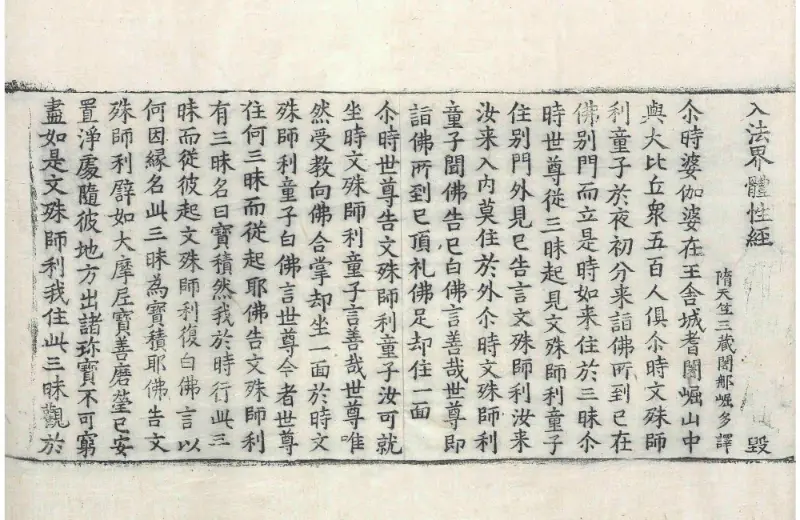 入法界體性經　毀
隋天竺三藏闍那崛多譯
尒時婆伽婆在王舍城耆闍崛山中
與大比丘衆五百人俱尒時文殊師
利童子於夜初分来詣佛所到已在
佛別門而立是時如来住於三昧尒
時世尊從三昧起見文殊師利童子
住別門外見已告言文殊師利汝来
汝来入内莫住於外尒時文殊師利
童子聞佛告已白佛言善哉世尊即
詣佛所到已頂礼佛足却住一面
尒時世尊告文殊師利童子汝可就
坐時文殊師利童子言善哉世尊唯
然受教向佛合掌却坐一面於時文
殊師利童子白佛言世尊今者世尊
住何三昧而從起耶佛告文殊師利
有三昧名曰寶積然我於時行此三
昧而從彼起文殊師利復白佛言以
何因縁名此三昧為寶積耶佛告文
殊師利譬如大摩尼寶善磨瑩已安
置淨處隨彼地方出諸珎寶不可窮
盡如是文殊師利我住此三昧觀於